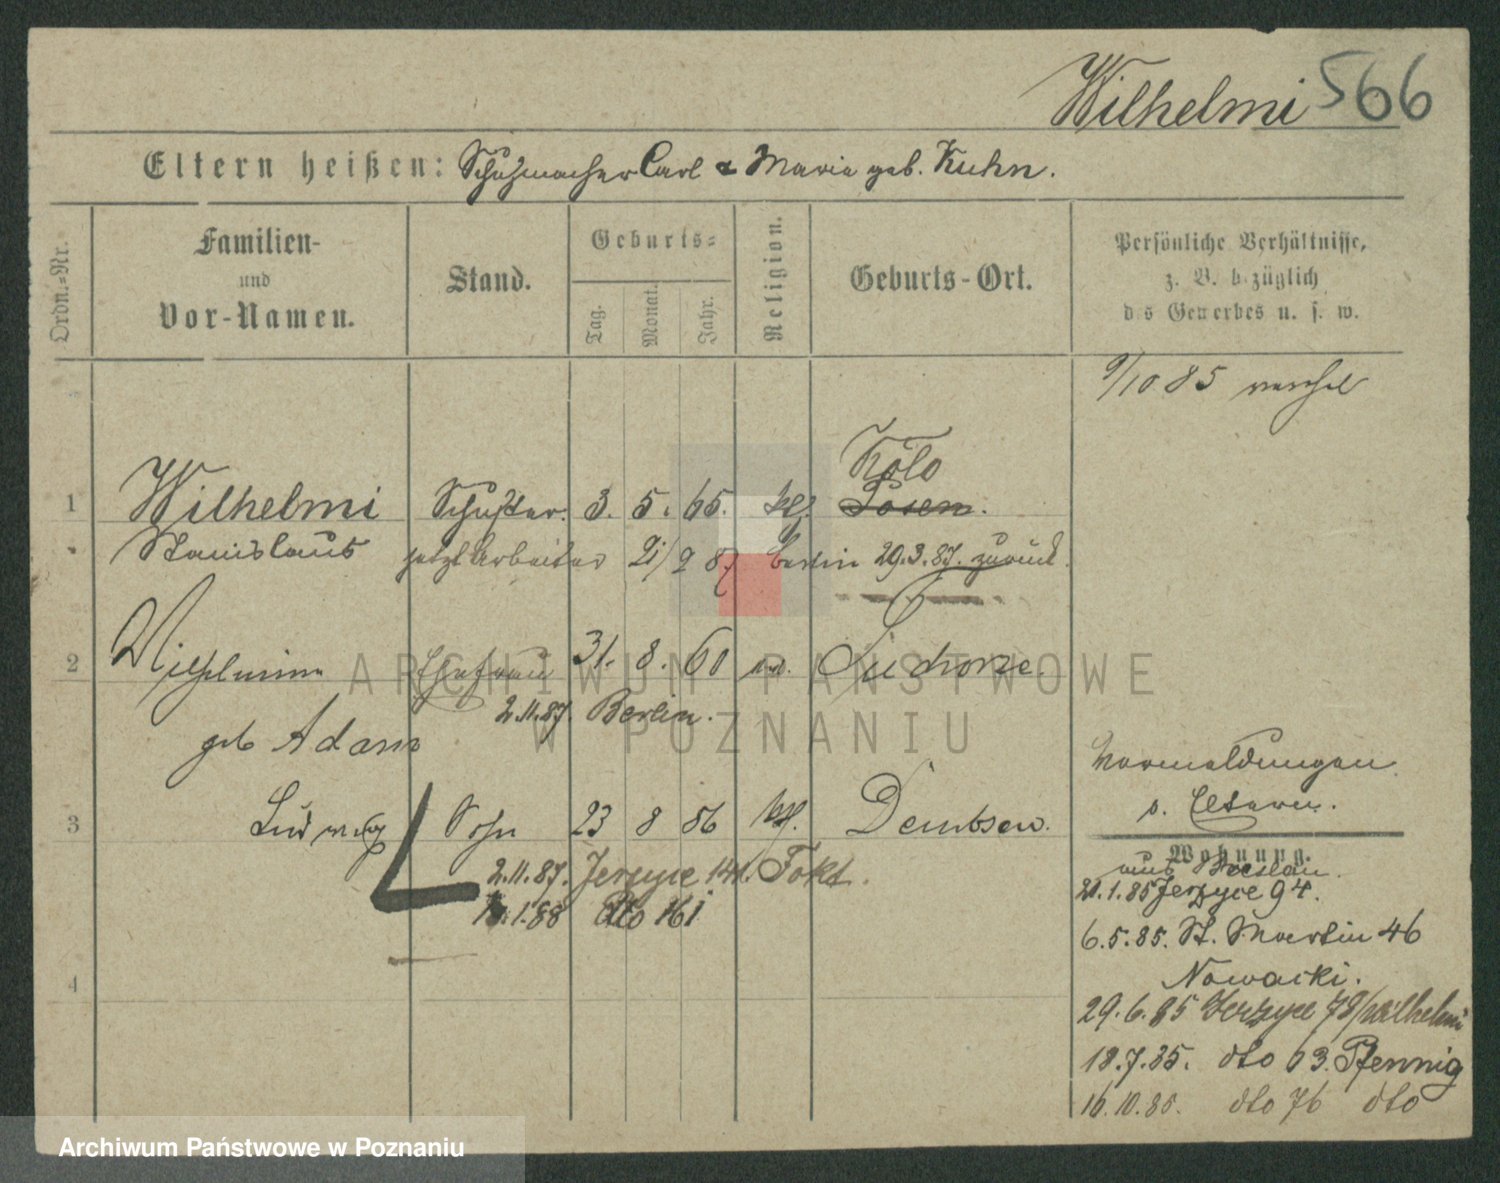 Wilhelmi 566
Eltern heißen: Schuhmacher Carl & Maria geb. Kuhn.
Ordn.-Nr.
Familien-
und
Vor-Namen.
Stand.
Geburts-
Tag.
Monat.
Jahr.
Religion.
Geburts-Ort.
Persönliche Verhältnisse,
z. B. bezüglich
des Gewerbes u. s. w.
9/10 85
Kolo
1 Wilhelmi Schuster. 3. 5. 65. Posen.
Stanislaus jetzt Arbeiter 87 Berlin 29.3.87. zurück.
2 Wilhelmine Ehefrau 31. 8. 60 Suchorze.
2.11.87. Berlin.
geb Adam
3 Ludwig Sohn 23 8 86 Dembsen.
2.11.87. Jerzyce 141. Fokt.
1.88 dto 161
4
Vormeldungen
s. Eltern.
Wohnung.
aus Breslau.
21.1.85 Jerzyce 94.
6.5.85. St. Martin 46
Nowacki.
29.6.85 Jerzyce 78/Wilhelmi
18.7.85. dto 63. Pfennig
16.10.85. dto 76 dto
ARCHIWUM PAŃSTWOWE
W POZNANIU
Archiwum Państwowe w Poznaniu